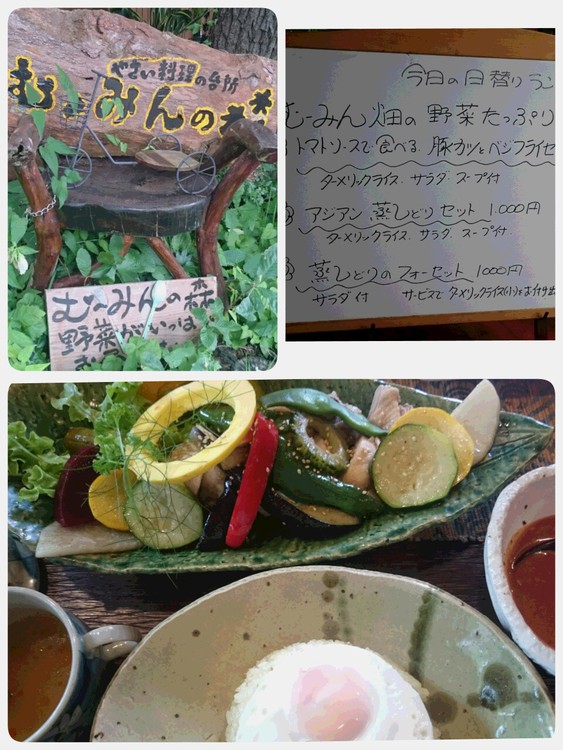 やさい料理の台所
む〜みんの森
む〜みんの森
野菜がいっぱい
今日の日替りラン
む〜みん畑の野菜たっぷり
トマトソースで食べる豚カツとベジフライセ
ターメリックライス、サラダ、スープ付
アジアン蒸しどりセット 1.000円
ターメリックライス、サラダ、スープ付
蒸しどりのフォーセット 1000円
サラダ付 サービスでターメリックライス(小)を